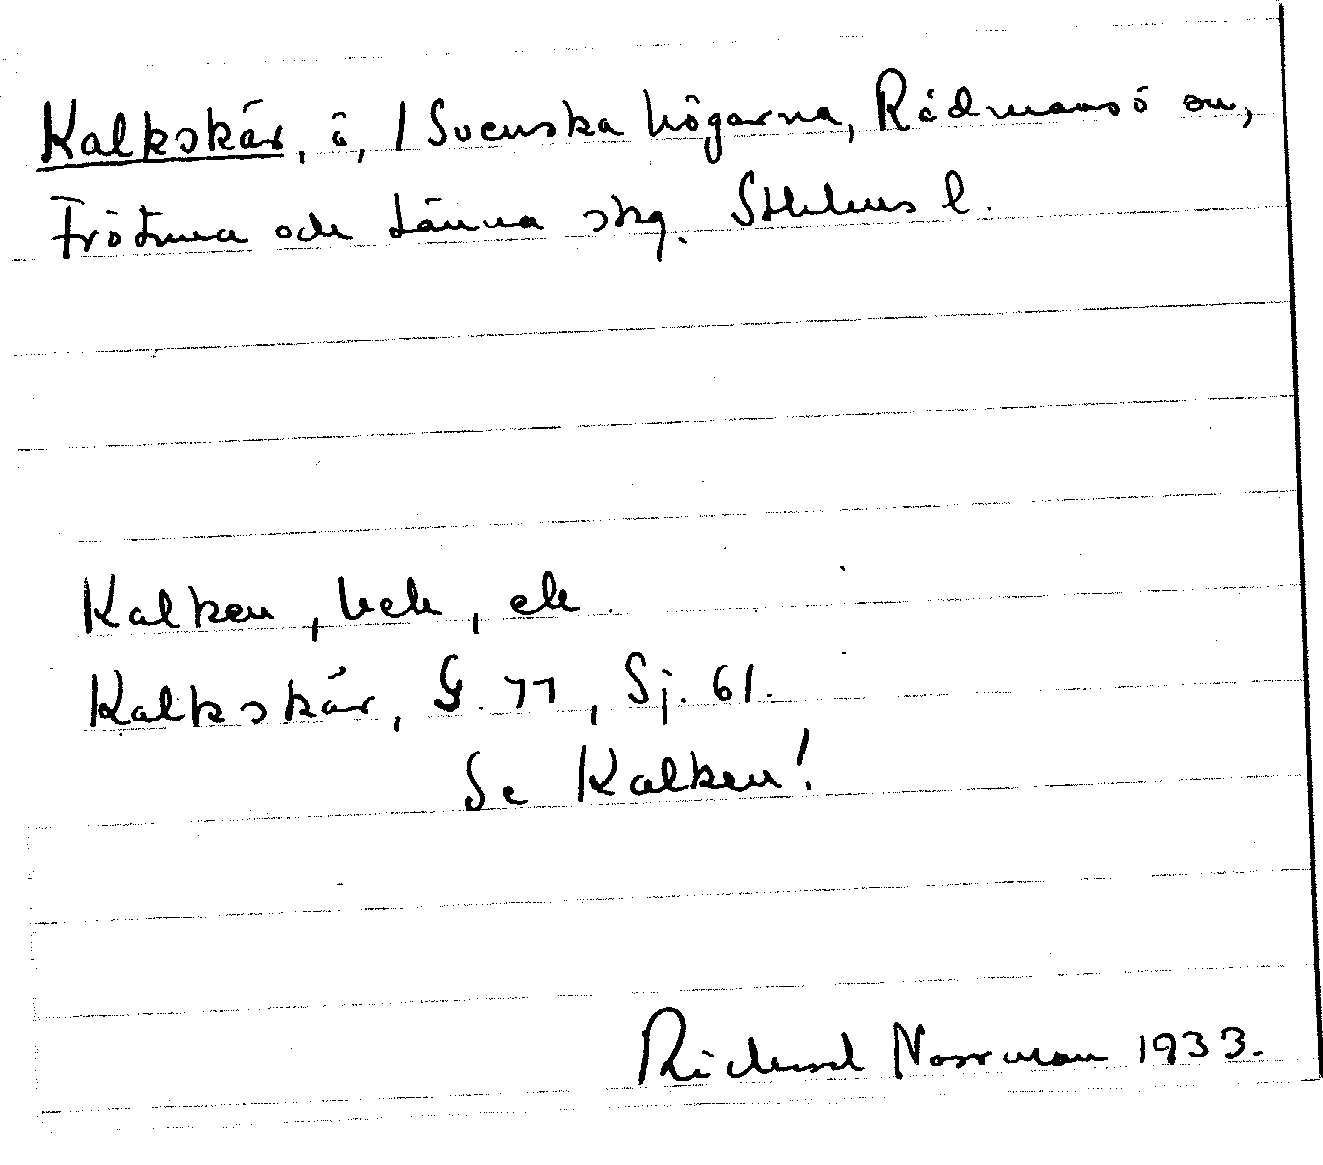 Kalkskär, ö, / Svenska högarna, Rådmansö sn,
Frötuna och Länna skg. Sthlms l.
Kalken, bek,
Kalkskär, G. 77, Sj. 61.
Se Kalken!
Rickard Norrman 1933.